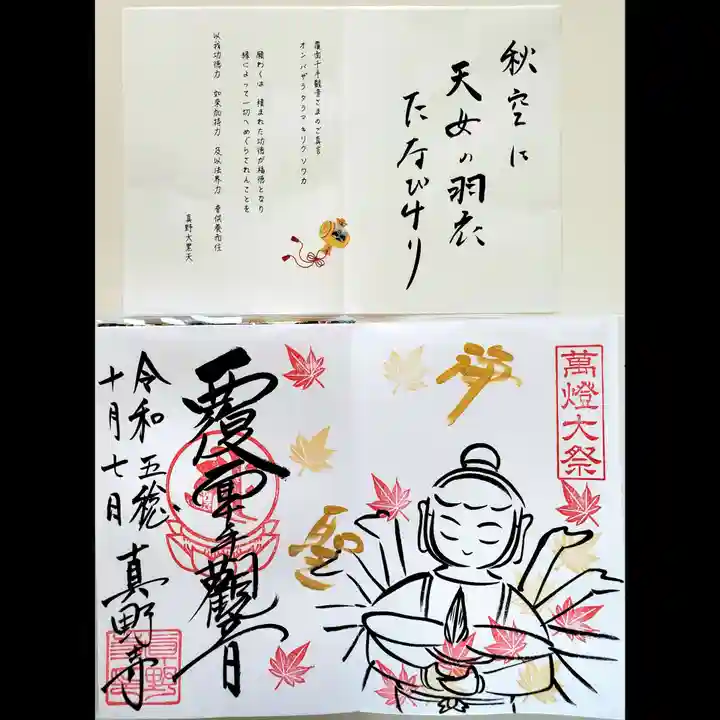 秋空に
天女の羽衣
たなびけり
オン バザラ タラマ キリク ソワカ
願わくは 積まれた功徳が福徳となり
縁によって一切へめぐらされんことを
以我功徳力 如来加持力 及以法界力 普供養而住
真野大黒天
萬燈大祭
夢
聖
観音
令和五稔
十月七日
真野寺